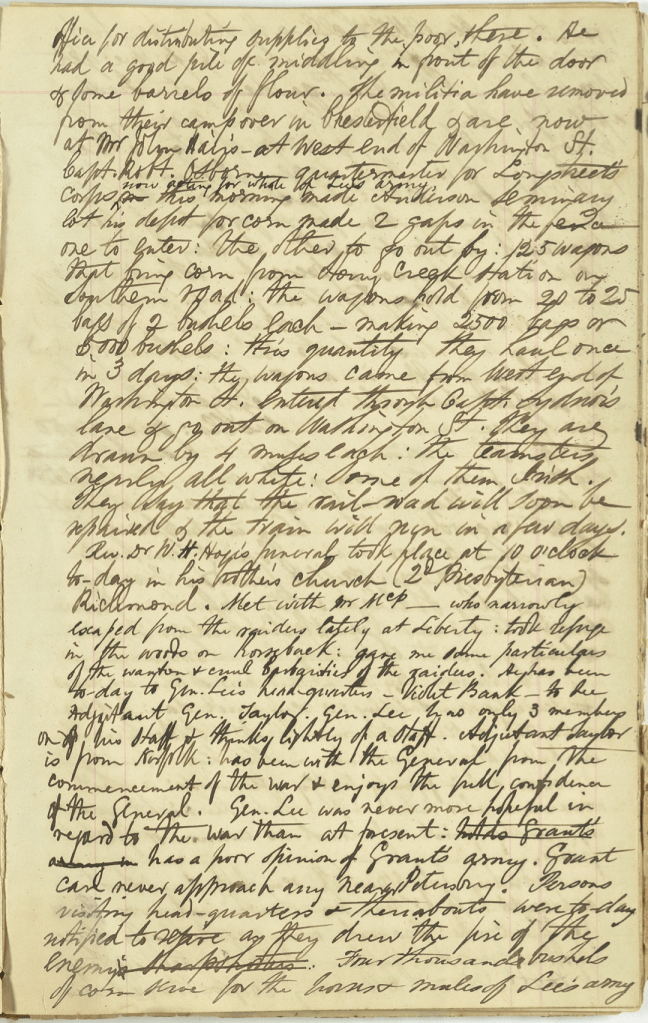 ffice for distributing supplies to the poor, there. He
had a good pile of middling in front of the door
& some barrels of flour. The militia have removed
from their camp over in Chesterfield & are now
at Mr John - at West end of Washington St.
Capt. Robt. Osborne quartermaster for Longstreet's
now acting for whole of Lee's army
corps this morning made Anderson Seminary
lot his depot for corn made 2 gaps in the fence
one to enter: the other to go out by: 125 wagons
that bring corn from Stony Creek Station on
Southern road: the wagons hold from 20 to 25
bags of 2 bushels each - making 2500 bags or
5000 bushels: this quantity they haul once
in 3 days: the wagons came from West end of
Washington St. entered through Capt. Lydnor's
lane & go out on Washington St. They are
drawn by 4 mules each: the teamsters
nearly all white: some of them Irish.
They say that the rail-road will soon be
repaired & the train will run in a few days.
Rev. Dr W. H. Hoge's funeral took place at 10 o'clock
to-day in his brother's church (2d Presbyterian)
Richmond. Met with Mr McP — who narrowly
escaped from the raiders lately at Liberty: took refuge
in the woods on horseback: gave me some particulars
of the wanton & cruel barbarities of the raiders. He has been
to-day to Gen. Lee's head-quarters - Violet Bank - to see
Adjutant Gen. Taylor. Gen. Lee has only 3 members
on his Staff & thinks lightly of a Staff. Adjutant Taylor
is from Norfolk: has been with the General from the
commencement of the war & enjoys the full confidence
of the General. Gen. Lee was never more hopeful in
regard to the war than at present: holds Grant's
army in has a poor opinion of Grant's army. Grant
can never approach any nearer Petersburg. Persons
visiting head-quarters & thereabouts were to-day
notified to retire as they drew the fire of the
enemy's sharpshooters. Four thousand bushels
of corn for the horses & mules of Lee's army